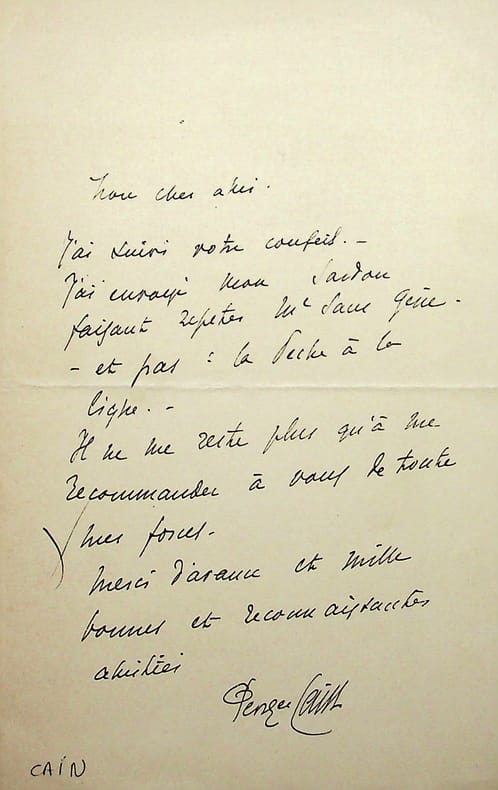 Mon cher ami.
J'ai suivi votre conseil. -
J'ai envoyé mon Sardou
faisant repeter Me Sans Gêne -
- et pas : la Peche à la
ligne. -
Il ne me reste plus qu'à me
recommander à vous de toute
mes forces.
Merci d'avance et mille
bonnes et reconnaissantes
amitiés
Georges Cain
CAÏN